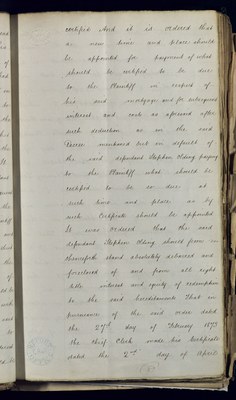 certified And it is ordered that
a new time and place should
be appointed for payment of what
should be certified to be due
to the Plaintiff in respect of
his said mortgage and for subsequent
interest and costs as aforesaid after
such deduction as in the said
Decree mentioned but in default of
the said defendant Stephen paying
to the Plaintiff what should be
certified to be so due at
such time and place as by
such Certificate should be appointed
It was ordered that the said
defendant Stephen should from
thenceforth stand absolutely debarred and
foreclosed of and from all right
title interest and equity of redemption
in the said hereditaments That in
pursuance of the said order dated
the 27th day of February 1873
the Chief Clerk made his Certificate
dated the 2nd day of April